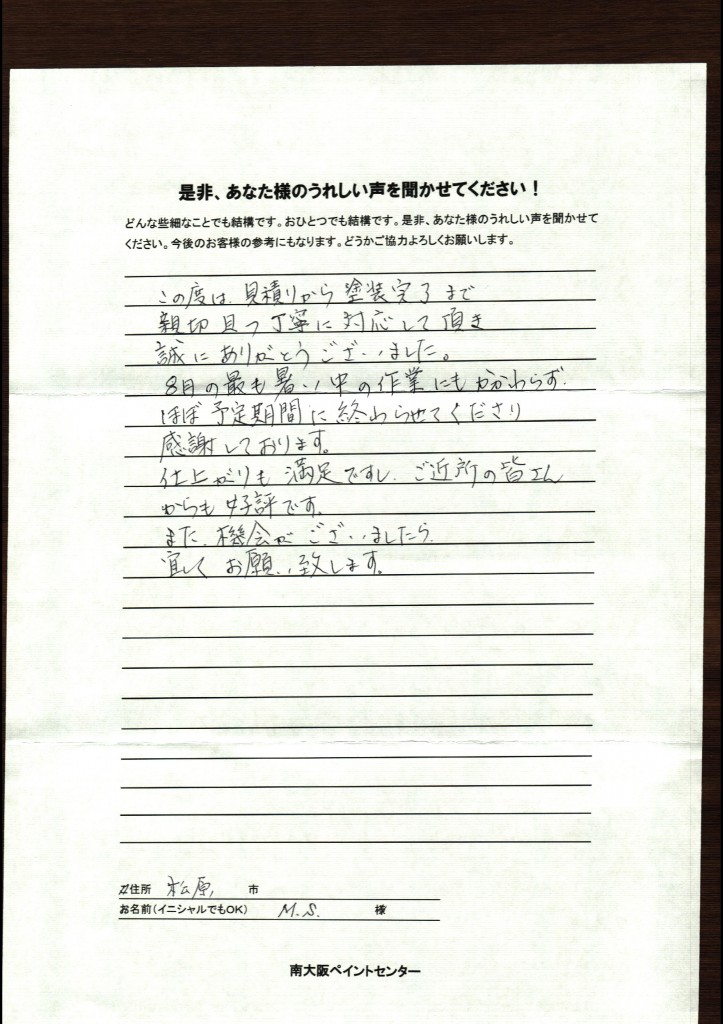 是非、あなた様のうれしい声を聞かせてください！
どんな些細なことでも結構です。おひとつでも結構です。是非、あなた様のうれしい声を聞かせて
ください。今後のお客様の参考にもなります。どうかご協力よろしくお願いします。
この度は、見積りから塗装完了まで
親切且つ丁寧に対応して頂き
誠にありがとうございました。
8月の最も暑い中の作業にもかかわらず、
ほぼ予定期間に終わらせてくださり
感謝しております。
仕上がりも満足ですし、ご近所の皆さん
からも好評です。
また、機会がございましたら、
宜しくお願い致します。
ご住所 松原 市
お名前(イニシャルでもOK) M.S. 様
南大阪ペイントセンター